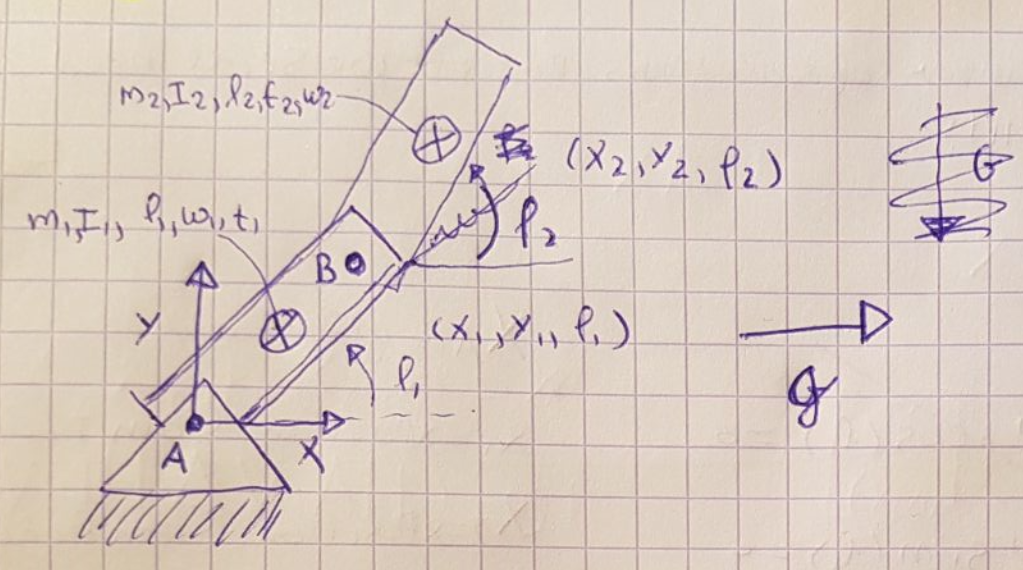 m₂, I₂, l₂, t₂, w₂
(x₂, y₂, φ₂)
G
m₁, I₁, l₁, w₁, t₁
φ₂
B
Y
(x₁, y₁, φ₁)
φ₁
g
A
X